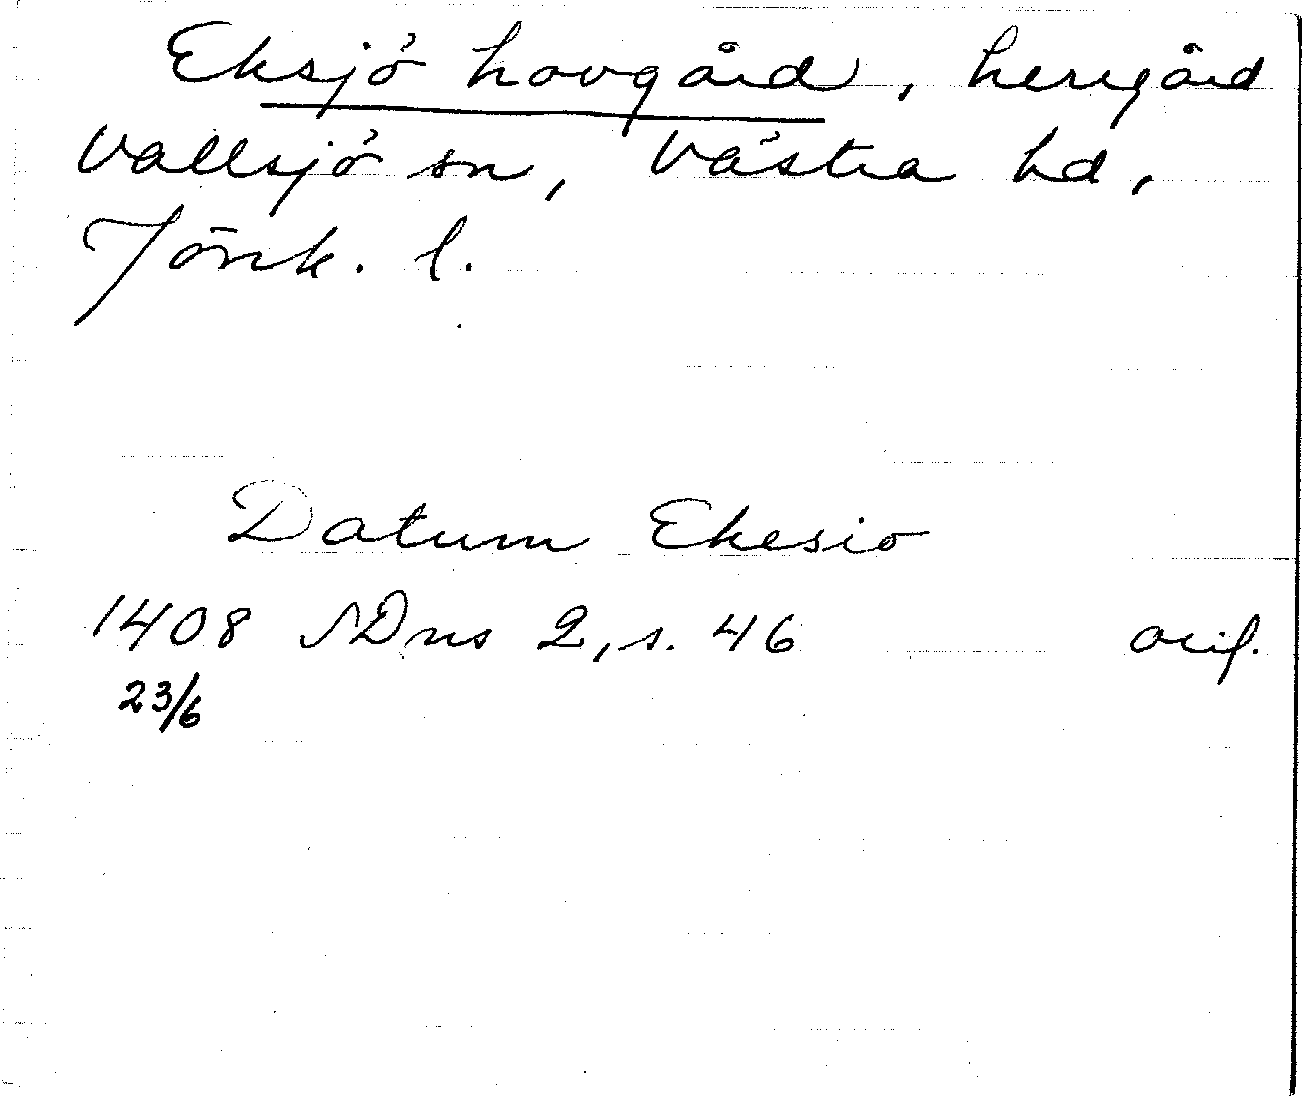 Eksjö hovgård, herrgård
Vallsjö sn, Västra hd,
Jönk. l.
Datum Ekesio
1408 SDns 2, s. 46 orig.
23/6